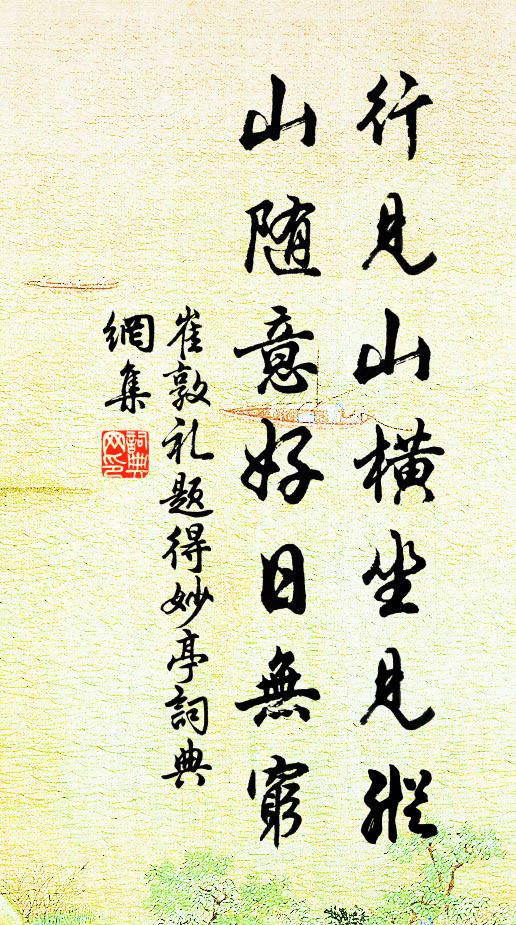 行見山橫坐見縱
山随意好日無窮
崔敦礼题得妙亭詞典
網集
詞典
网印